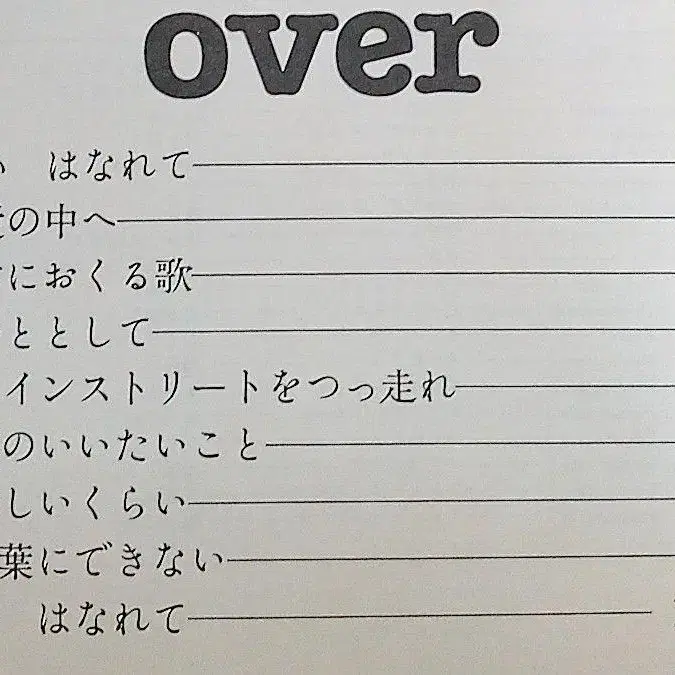 over
はなれて
の中へ
におくる歌
ととして
インストリートをつっ走れ
のいいたいこと
しいくらい
葉にできない
はなれて